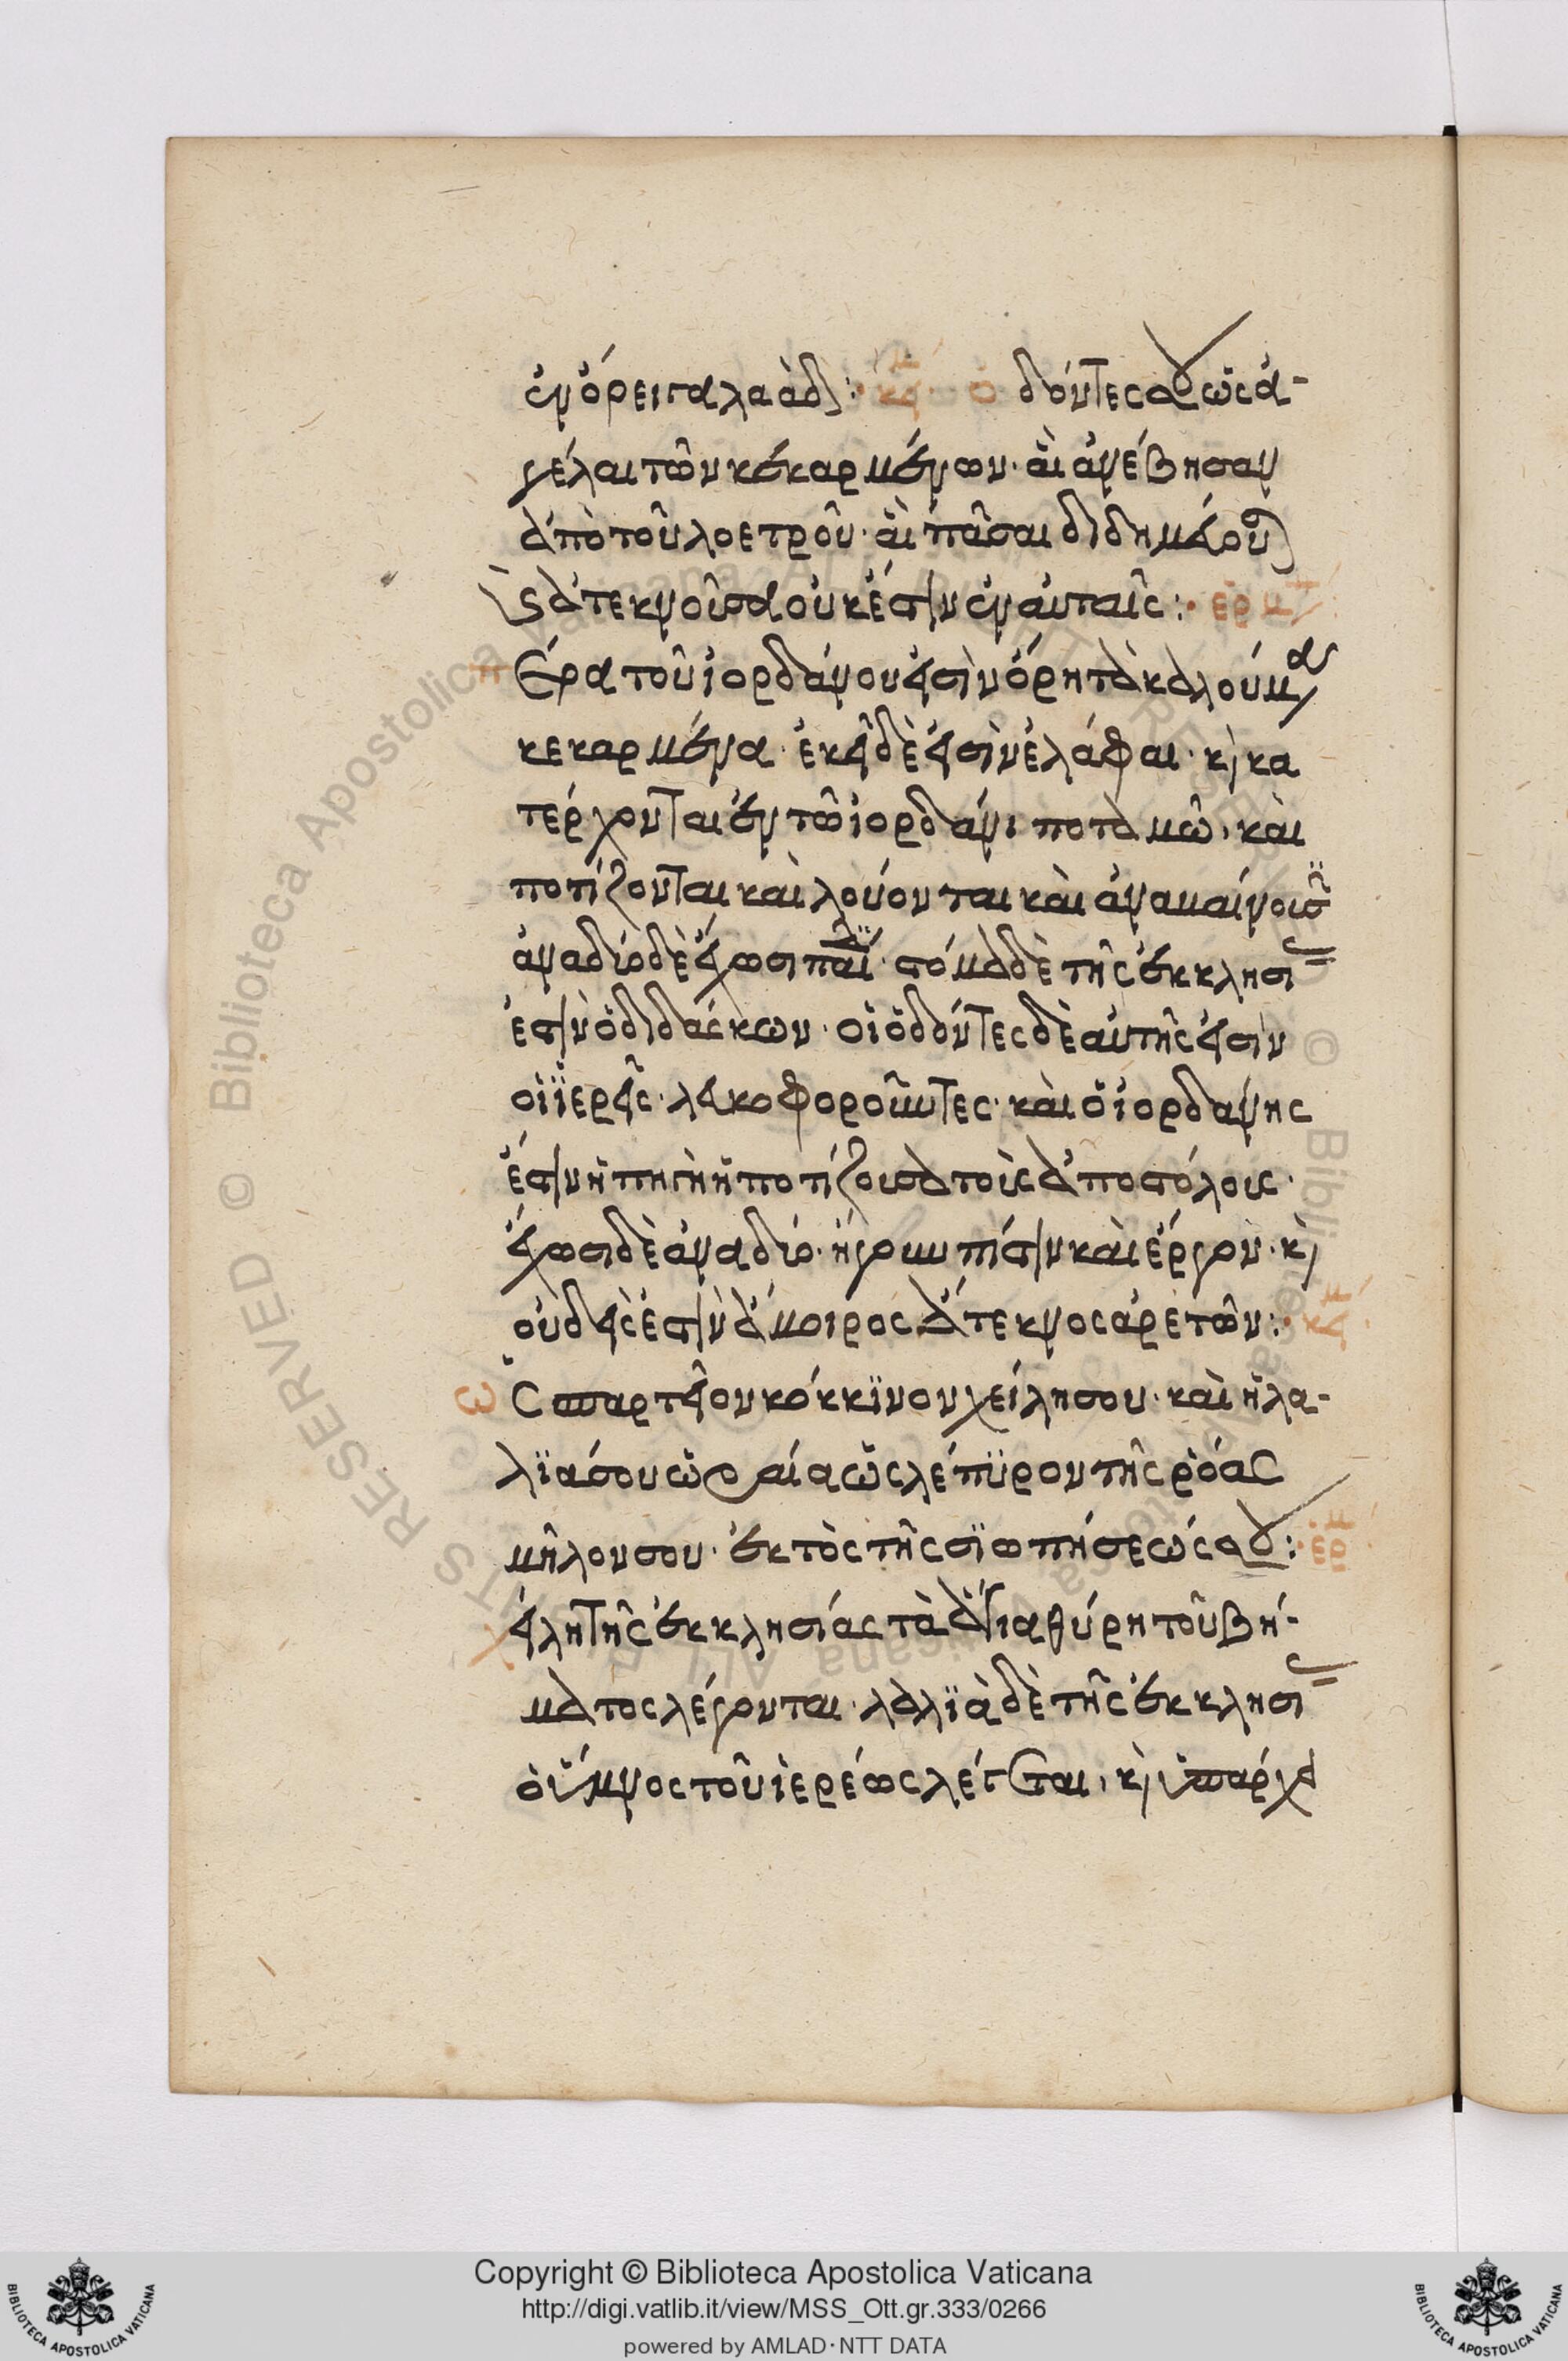 ἐν ὄρει γαλαὰδ: κῆ. ὀ δόντες α ὡς ἀ-
γέλαι τῶν κεκαρμένων· ἃι ἀνέβησαν
ἀπὸ τοῦ λοετροῦ· ἃι πᾶσαι διδημέου
ς ἀτεκνοῦσα οὐκ ἔστιν ἐν ἀυταῖς:
π έρα τοῦ ἰορδάνου εἰσὶν ὄρη τὰ καλούμ
κεκαρμένα· ἐκεῖ δὲ εἰσὶν ἐλάφαι· κὶ κα
τέρχονται ἐν τῶ ἰορδάνι ποταμῶ, καὶ
ποτίζονται καὶ λούονται καὶ ἀναμαίνουσ
ἀναδιὸ δὲ ἔχωσι παῖ· στόμα δὲ τῆς ἐκκλησι
ἐστὶν ὁ διδάσκων· οἱ ὀδόντες δὲ αὐτῆς εἰσὶν
οἱ ἱερεῖς· λευκοφοροῦντες· καὶ ὁ ἰορδάνης
ἔστιν ἡ πηγὴ ἡ ποτίζουσα τοὺς ἀποστόλους·
ἔχωσι δὲ ἀναδιό· ἤγουν πίστιν καὶ ἔργον· κὶ
οὐδεὶς ἐστὶν ἄμοιρος ἄτεκνος ἀρετῶν:
ω ς σπαρτεῖον κόκκϊνον χείλη σου· καὶ ἡ λα-
λϊά σου ὡραία ὡς λέπϋρον τῆς ῥόας
μῆλον σου· ἐκτὸς τῆς σϊωπήσεως α:
χ είλη τῆς ἐκκλησίας τὰ ἅγια θύρη τοῦ βή-
ματος λέγονται· λαλϊὰ δὲ τῆς ἐκκλησι
ὁ ὕμνος τοῦ ἱερέως λέγεται, κὶ ὑπάρχει
Copyright © Biblioteca Apostolica Vaticana
http://digi.vatlib.it/view/MSS_Ott.gr.333/0266
powered by AMLAD·NTT DATA